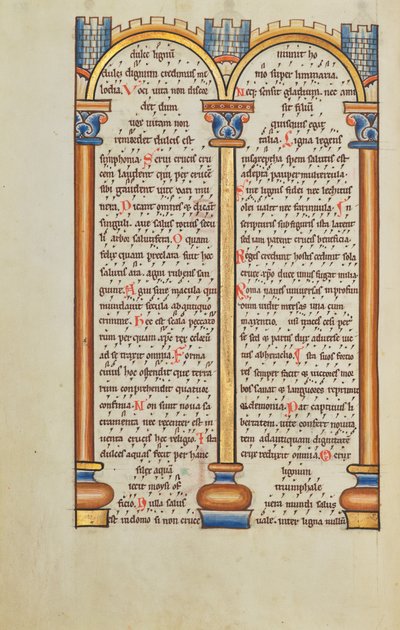 dulce lignū
dulci dignum credimus me
lodia. Voci vita non discor
det dum
vox vitam non
remordet dulcis est
symphonia. Servi crucis cru
cem laudent qui per crucē
sibi gaudent vite dari mu
nera. Dicant omnes & dicant
singuli. ave salus totius secu
li arbor salutifera. O quam
felix quam preclara fuit hec
salutis ara. agni rubens san
guine. Agni sine macula qui
mundavit secula ab antiquo
crimine. Hec est scala peccato
rum per quam xpc rex celorū
ad se traxit omnia. Forma
cuius hoc ostendit que terra
rum comprehendit quatuor
confinia. Non sunt nova sa
cramenta nec recenter est in
venta crucis hec religio. Ista
dulces aquas fecit per hanc
silex aquā
iecit moysi of
ficio. Nulla salus
est in domo si non cruce
munit ho
mo super liminaria.
Neque sensit gladium nec ami
sit filiū
quisquis egit
talia. Ligna legens
in sarepta spem salutis est
adepta pauper muliercula.
Sine lignis fidei nec lechitus
olei valet nec farinula. In
scripturis sub figuris ista latent
sed iam patent crucis beneficia.
Reges credunt hostes cedunt sola
cruce xpo duce unus fugat milia.
Roma naves universas in profun
dum vidit mersas una cum
maxentio. fusi traces cesi per
se sed & partis dux adverse vic
tus ab heraclio. Ista suos forcio
res semper facit & victores mor
bos sanat & languores reprimit
demonia. Dat captivis li
bertatem. vite confert novita
tem ad antiquam dignitatē
crux reduxit omnia. O crux
lignum
triumphale
vera mundi salus
vale. inter ligna nullū